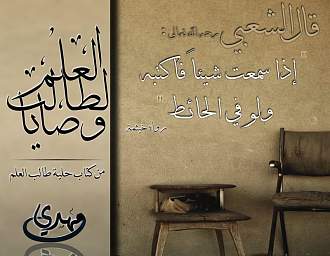 قال الشعبي رحمه الله تعالى:
"إذا سمعت شيئاً فاكتبه
ولو في الحائط"
رواه خيثمة
وصايا
لطالب
العلم
من كتاب حلية طالب العلم